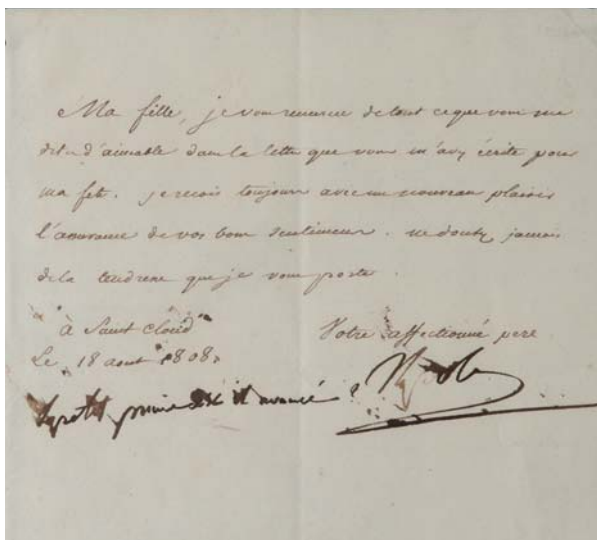 Ma fille, je vous remercie de tout ce que vous me
dites d'aimable dans la lettre que vous m'avez écrite pour
ma fête. je reçois toujours avec un nouveau plaisir
l'assurance de vos bons sentimens. ne doutez jamais
de la tendresse que je vous porte.
à Saint Cloud
Le 18 aout 1808.
Votre affectionné pere
prince est il avancé